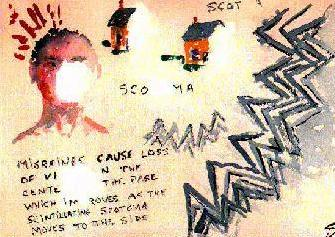 SCOT
SCO MA
MIGRAINES CAUSE LOSS
OF VI N THE
CENTE THE PAGE
WHICH IM ROVES AS THE
SCINTILLATING SCOTOMA
MOVES TO THE SIDE